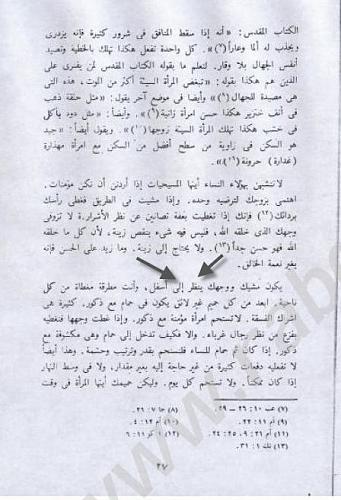 الكتاب المقدس: «أنه إذا سقط المنافق فى شرور كثيرة فإنه يزدرى
ويجذب له ألما وعاراً(٧)». كل واحدة تفعل هكذا تهلك بالخطية وتصيد
أنفس الجهال بلا وقار. لنتعلم ما يقوله الكتاب المقدس لمن يفترى على
الذين هم هكذا بقوله: «تبغض المرأة السيئة أكثر من الموت، هذه التى
هى مصيدة للجهال(٨)» وأيضا فى موضع آخر يقول: «مثل حلقة ذهب
فى أنف خنزير هكذا حسن امرأة زانية(٩)». وأيضاً: «مثل دود يأكل
فى خشب هكذا تهلك المرأة السيئة زوجها(١٠)». ويقول أيضاً: «جيد
هو السكن فى زاوية من سطح أفضل من السكن مع امرأة مهذارة
(غدارة) حرونة(١١)».
لاتتشبهن بهؤلاء النساء أيتها المسيحيات إذا أردتن أن تكن مؤمنات.
اهتمى بزوجك لترضيه وحده. وإذا مشيت فى الطريق فغطى رأسك
بردائك(١٢) فإنك إذا تغطيت بعفة تصانين عن نظر الأشرار. لا تزوقى
وجهك الذى خلقه الله، فليس فيه شىء ينقص زينة، لأن كل ما خلقه
الله فهو حسن جداً(١٣) . ولا يحتاج إلى زينة. وما زيد على الحسن فإنه
يغير نعمة الخالق.
يكون مشيك ووجهك ينظر إلى أسفل، وأنت مطرقة مغطاة من كل
ناحية. ابعد من كل حميم غير لائق يكون فى حمام مع ذكور. كثيرة هى
اشراك الفسقة. لاتستحم امرأة مؤمنة مع ذكور. وإذا غطت وجهها فتغطيه
بفزع من نظر رجال غرباء. والا فكيف تدخل إلى حمام وهى مكشوفة مع
ذكور. إذا كان ثم حمام للنساء فلتستحم بقدر وترتيب وحشمة. وهذا أيضاً
لا تفعليه دفعات كثيرة من غير حاجة إليه بغير مقدار، ولا فى وسط النهار
إذا كان ممكناً. ولا تستحم كل يوم. وليكن حميمك أيتها المرأة فى وقت
(٧) عب ١٠: ٢٦ ــ ٢٩. (٨) جا ٧: ٢٦.
(٩) أم ١١: ٢٢. (١٠) أم ١٢: ٤.
(١١) أم ٢١: ٩، ٢٥: ٢٤. (١٢) ١ كو ١١: ٦
(١٣) تك ١: ٣١.
٢٧